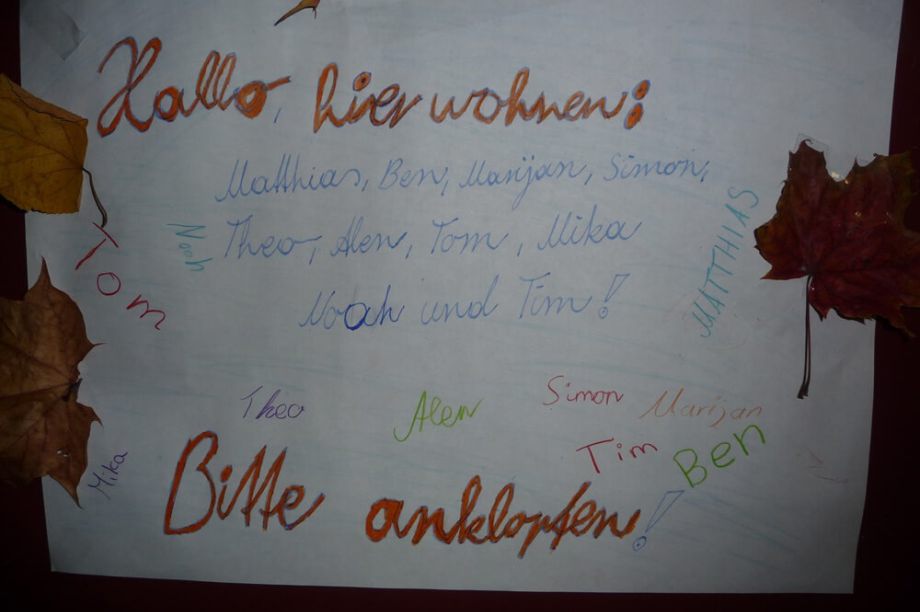 Hallo, hier wohnen:
Matthias, Ben, Marijan, Simon,
Theo, Alen, Tom, Mika
Noah und Tim!
Noah
TOM
MATTHIAS
Theo
Alen
Simon
Marijan
Tim
Ben
Mika
Bitte anklopfen!